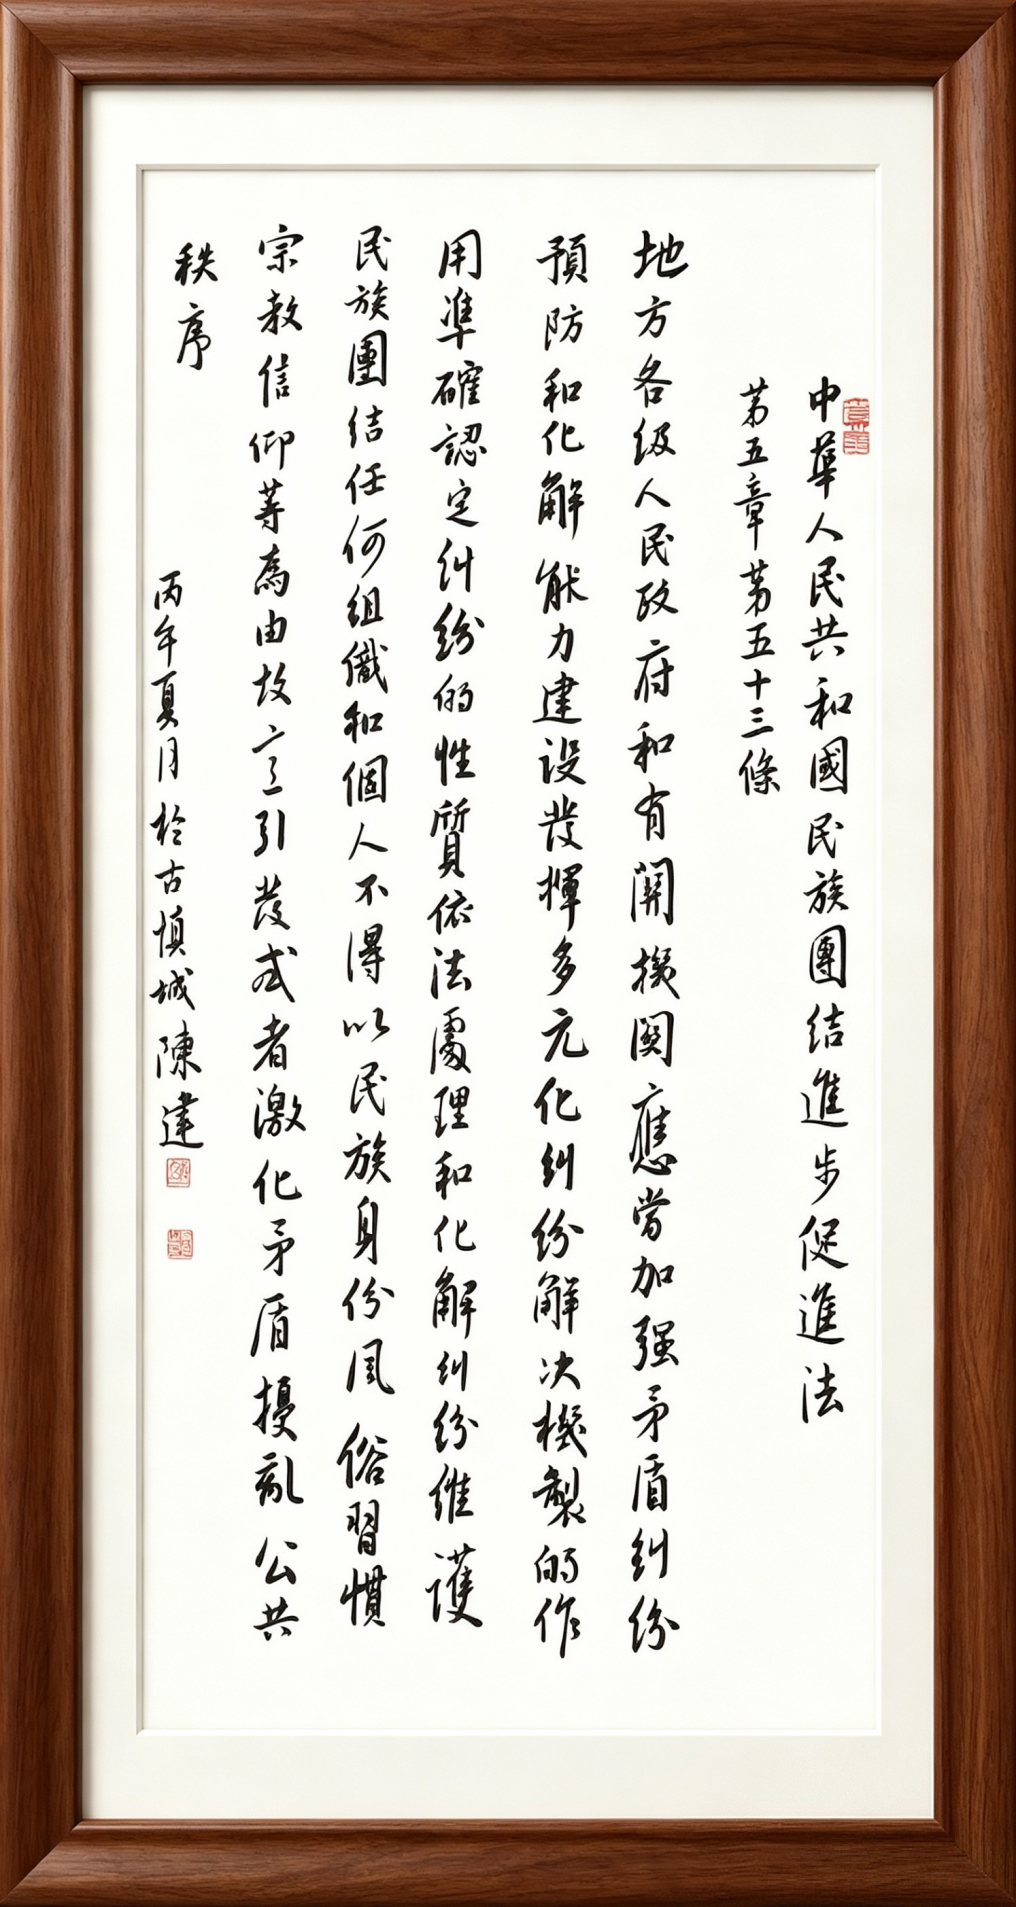 中華人民共和國民族團結進步促進法
第五章第五十三條
地方各级人民政府和有關機関應當加强矛盾糾紛
預防和化解能力建设發揮多元化糾紛解决機製的作
用準確認定糾紛的性質依法處理和化解糾紛維護
民族團結任何組織和個人不得以民族身份風俗習惯
宗教信仰等為由故意引發或者激化矛盾擾亂公共
秩序
丙午夏月於古慎城陳達